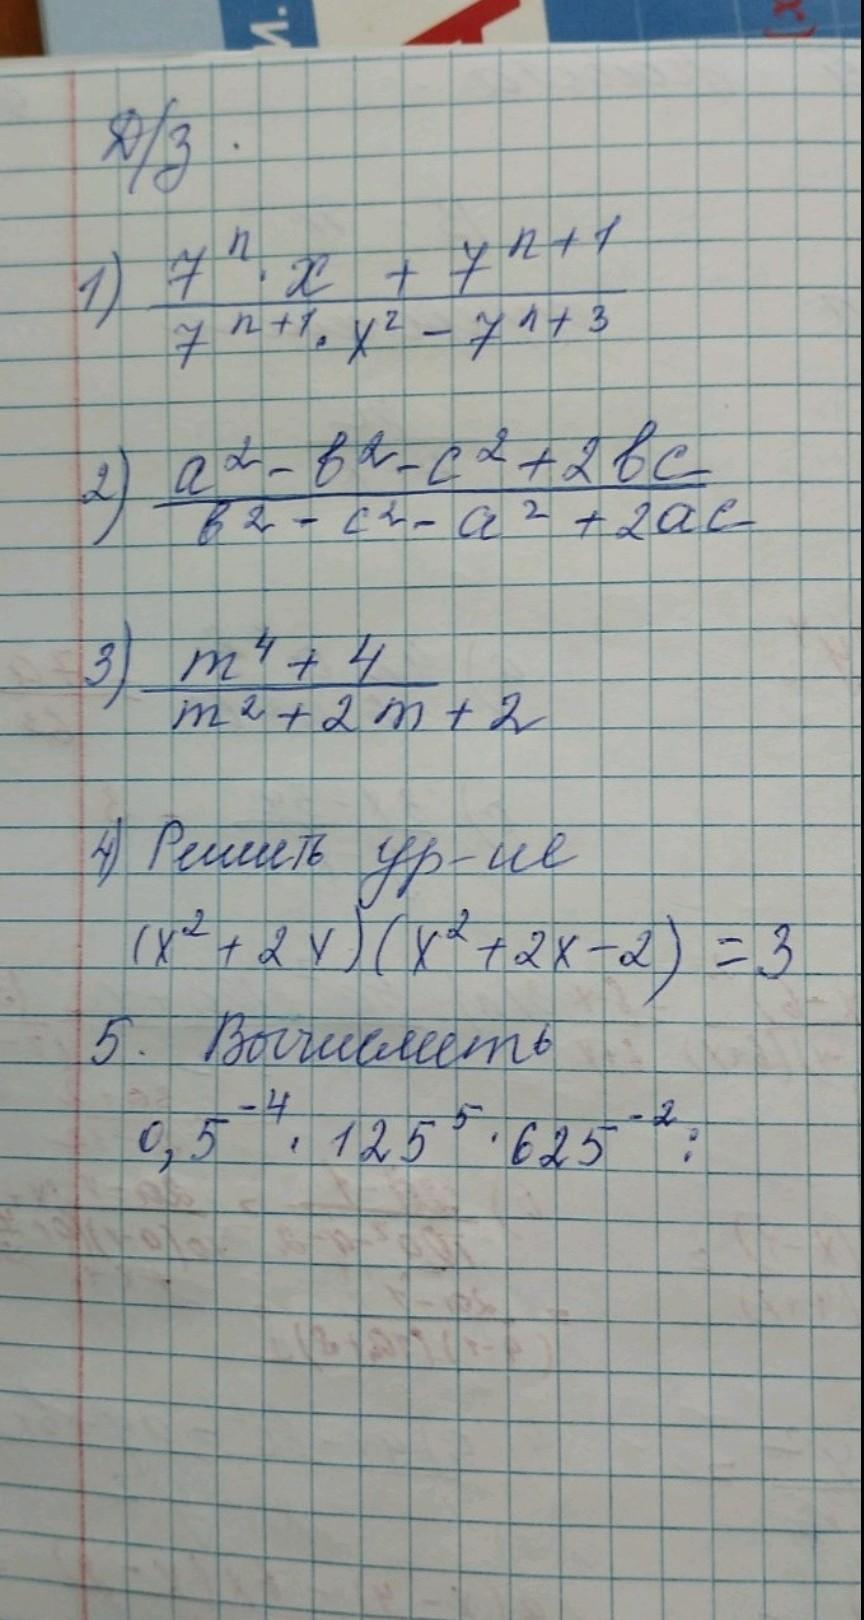 Д/З.
1) (7^n · x + 7^(n+1)) / (7^(n+1) · x² − 7^(n+3))
2) (a² − b² − c² + 2bc) / (b² − c² − a² + 2ac)
3) (m⁴ + 4) / (m² + 2m + 2)
4) Решить ур-ие
(x² + 2x)(x² + 2x − 2) = 3
5. Вычислить
0,5^(−4) · 125^5 · 625^(−2) :